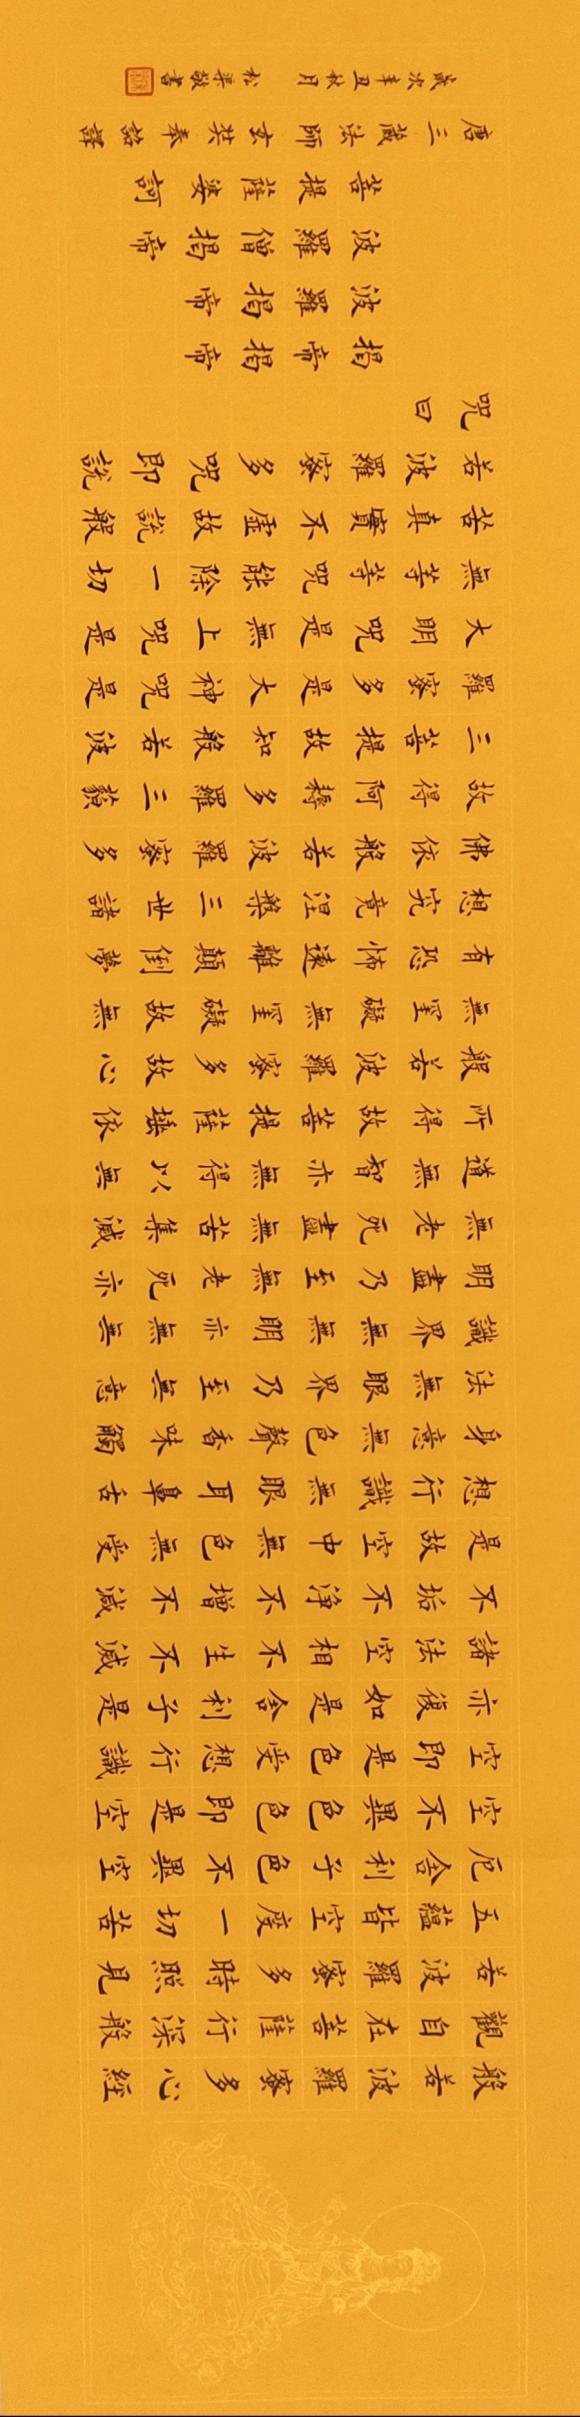 般若波羅蜜多心經
觀自在菩薩行深般
若波羅蜜多時照見
五蘊皆空度一切苦
厄舍利子色不異空
空不異色色即是空
空即是色受想行識
亦復如是舍利子是
諸法空相不生不滅
不垢不淨不增不減
是故空中無色無受
想行識無眼耳鼻舌
身意無色聲香味觸
法無眼界乃至無意
識界無無明亦無無
明盡乃至無老死亦
無老死盡無苦集滅
道無智亦無得以無
所得故菩提薩埵依
般若波羅蜜多故心
無罣礙無罣礙故無
有恐怖遠離顛倒夢
想究竟涅槃三世諸
佛依般若波羅蜜多
故得阿耨多羅三藐
三菩提故知般若波
羅蜜多是大神咒是
大明咒是無上咒是
無等等咒能除一切
苦真實不虛故說般
若波羅蜜多咒即說
咒曰
揭帝揭帝
波羅揭帝
波羅僧揭帝
菩提薩婆訶
唐三藏法師玄奘奉詔譯
歲次辛丑秋月 松渠敬書